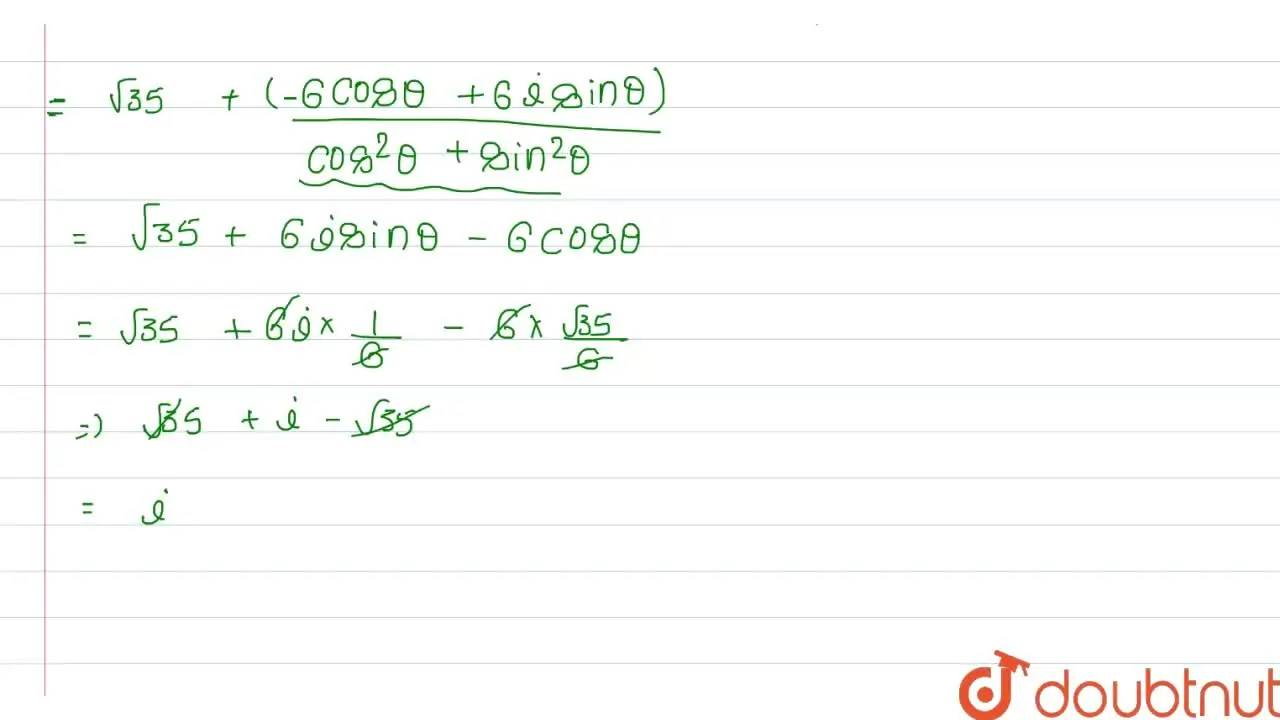 = √35 + (-6cosθ + 6isinθ)
cos²θ + sin²θ
= √35 + 6isinθ - 6cosθ
= √35 + 6i × 1/6 - 6 × √35/6
=) √35 + i - √35
= i
doubtnut